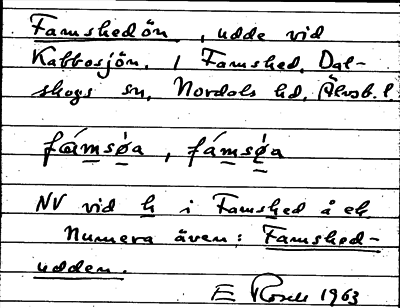 Famshedön, udde vid
Kabbosjön, i Famshed, Dal-
skogs sn, Nordals hd, Älvsb. l.
fámsøa, fámsøa
NV vid h i Famshed å ek.
Numera även: Famshed-
udden.
E Rosell 1963